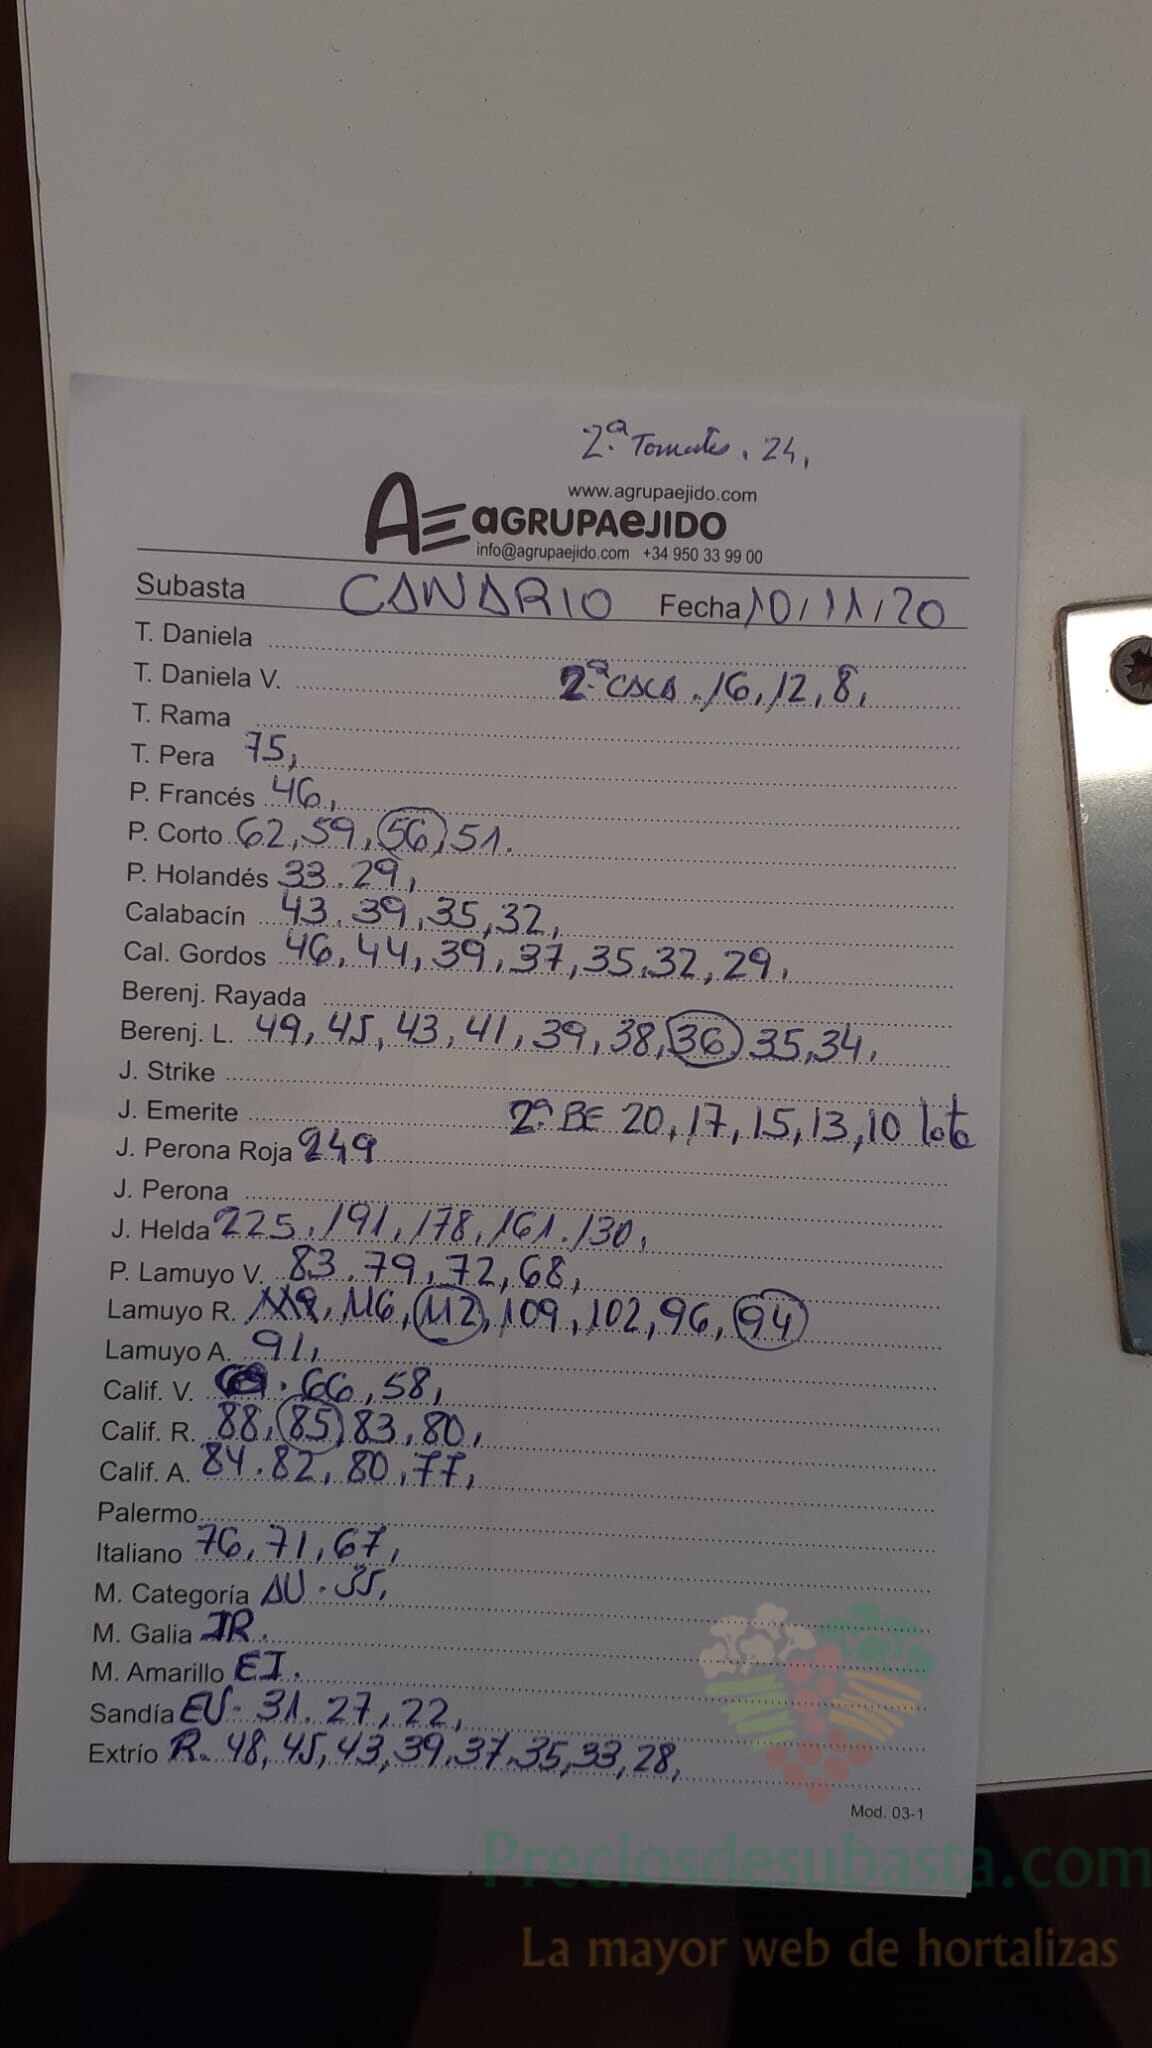 2ª Tomates. 24,
www.agrupaejido.com
AE aGRUPAeJIDO
info@agrupaejido.com +34 950 33 99 00
Subasta CANARIO Fecha 10/11/20
T. Daniela
T. Daniela V. 2ª CACA. 16, 12, 8,
T. Rama
T. Pera 75,
P. Francés 46,
P. Corto 62, 59, 56, 51.
P. Holandés 33. 29,
Calabacín 43. 39, 35, 32,
Cal. Gordos 46, 44, 39, 37, 35, 32, 29,
Berenj. Rayada
Berenj. L. 49, 45, 43, 41, 39, 38, 36 35, 34,
J. Strike
J. Emerite 2ª BE 20, 17, 15, 13, 10 lote
J. Perona Roja 249
J. Perona
J. Helda 225. 191, 178, 161. 130,
P. Lamuyo V. 83. 79, 72, 68,
Lamuyo R. 116, 112, 109, 102, 96, 94
Lamuyo A. 91,
Calif. V. 66, 58,
Calif. R. 88, 85 83, 80,
Calif. A. 84. 82, 80, 77,
Palermo
Italiano 76, 71, 67,
M. Categoría AU. 35,
M. Galia IR.
M. Amarillo EI.
Sandía EU- 31. 27, 22,
Extrío R. 48, 45, 43, 39, 37, 35, 33, 28,
Mod. 03-1
Preciosdesubasta.com
La mayor web de hortalizas